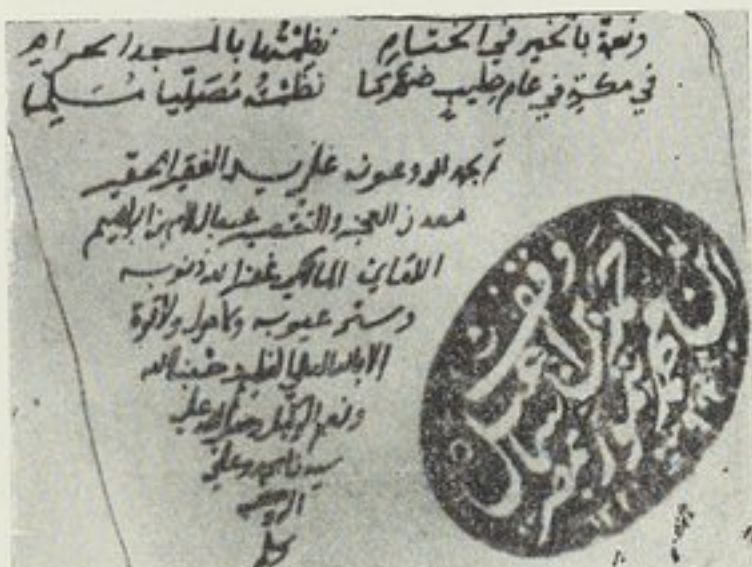 ونعمة بالخير في الختام نظمتها بالمسجد الحرام
في مكة في عام طيب ضمها نظمته مصليا مسلما
تم بحمد الله وعونه على يد الفقير الحقير
معدن العجز والتقصير عبد السلام بن ابراهيم
اللقاني المالكي غفر الله ذنوبه
وستر عيوبه ولا حول ولا قوة
الا بالله العلي العظيم حسبنا الله
ونعم الوكيل وصلى الله على
سيدنا محمد وعلى
اله وصحبه
وقف
احمد بن اسماعيل
بن محمد تيمور
بمصر